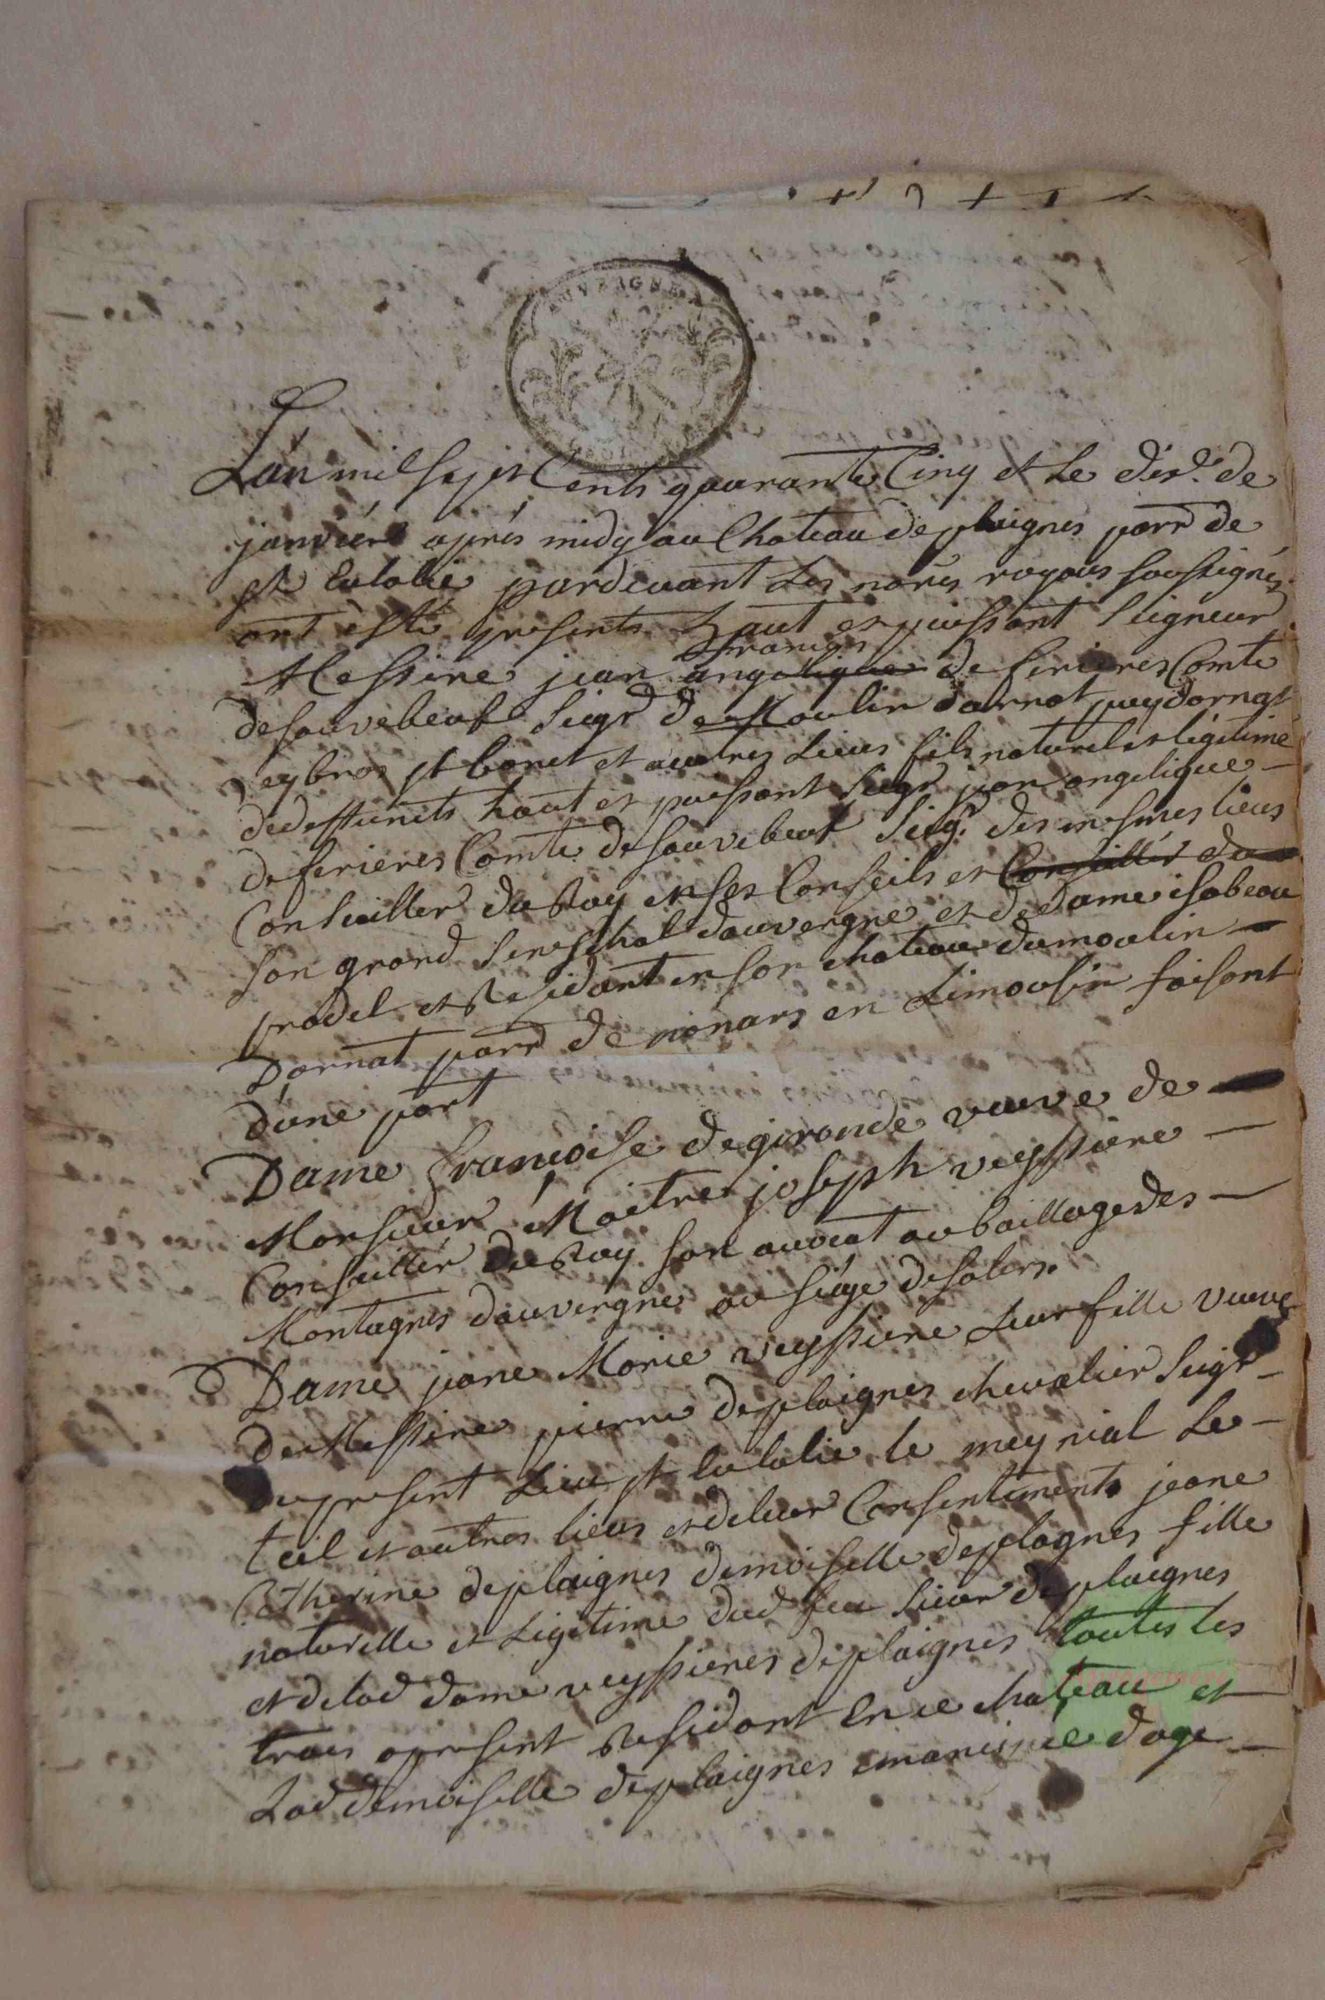 AUVERGNE
L'an mil sept Cents quarante Cinq et Le dix.e de
janvier après midy au Chateau de plaignes parr de
st Eulalie pardevant Les nores royaus soussignés
ont esté presents haut et puissant Seigneur
françois
Messire jean angelique de ferieres Comte
de sauvebeuf Seigr de Moulin darnat, puydarnat
st bonet et autres Lieux fils naturel et légitime
de deffunts haut et puissant Seigr jean angelique
de ferieres Comte de sauvebeuf Seigr des mesmes lieus
Conseiller du Roy en ses Conseils et Conseiller du
son grand Seneschal dauvergne et de dame isabeau
pradel et Residant en son chateau du moulin
Darnat parr de nonars en Limousin faisant
d'une part
Dame françoise de gironde veuve de
Monsieur Maitre joseph veyssiere
Conseiller du Roy son avocat au baillage des
Montagnes dauvergne au siége de salers
Dame jane Marie veyssiere Leur fille veuve
de Messire pierre de plaignes chevalier Seigr
du present Lieu st Eulalie le meynial Le
teil et autres lieus et de leur Consentement jeane
Catherine de plaignes demoiselle de plagnes fille
naturelle et Légitime dud feu sieur de plaignes
et de lad dame veyssieres de plaignes toutes les
trois apresent Residant En ce chateau et
Lad demoiselle de plaignes emancipée d'age